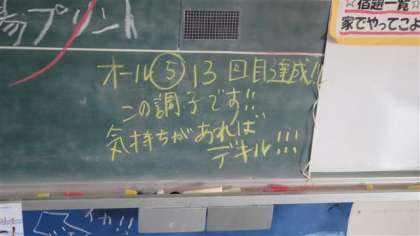 易プリント
☆宿題一覧☆
家でやってこよ
オール⑤13回目達成!!
この調子です!!
気持ちがあれば
デキル!!!
イカ!!